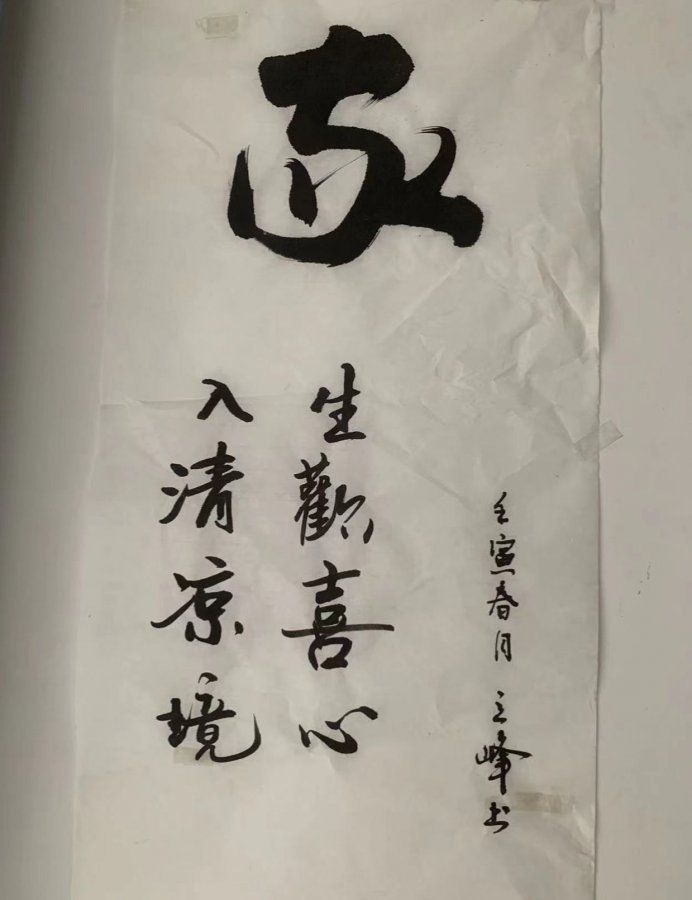 生歡喜心
入清凉境
壬寅春月 立峰书